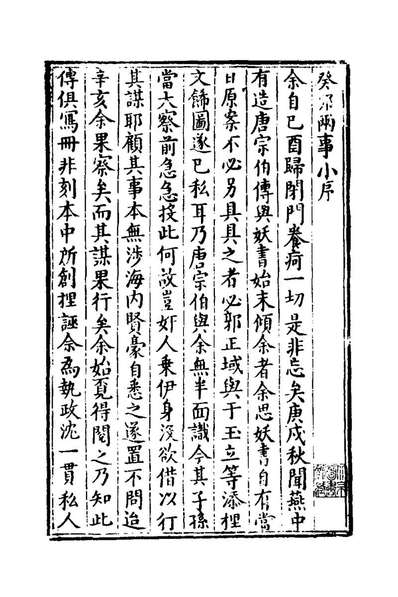 癸卯兩事小序
余自己酉歸閉門養疴一切是非忘矣庚戌秋聞燕中
有造唐宗伯傳與妖書始末傾余者余思妖書自有當
日原案不必另具具之者必郭正域與于玉立等添揑
文餙圖遂已私耳乃唐宗伯與余無半面識今其子孫
當大察前急急授此何故豈奸人乗伊身沒欲借以行
其謀耶顧其事本無涉海内賢豪自悉之遂置不問迨
辛亥余果察矣而其謀果行矣余始覔得閱之乃知此
傳俱寫冊非刻本中所創揑誣余爲執政沈一貫私人